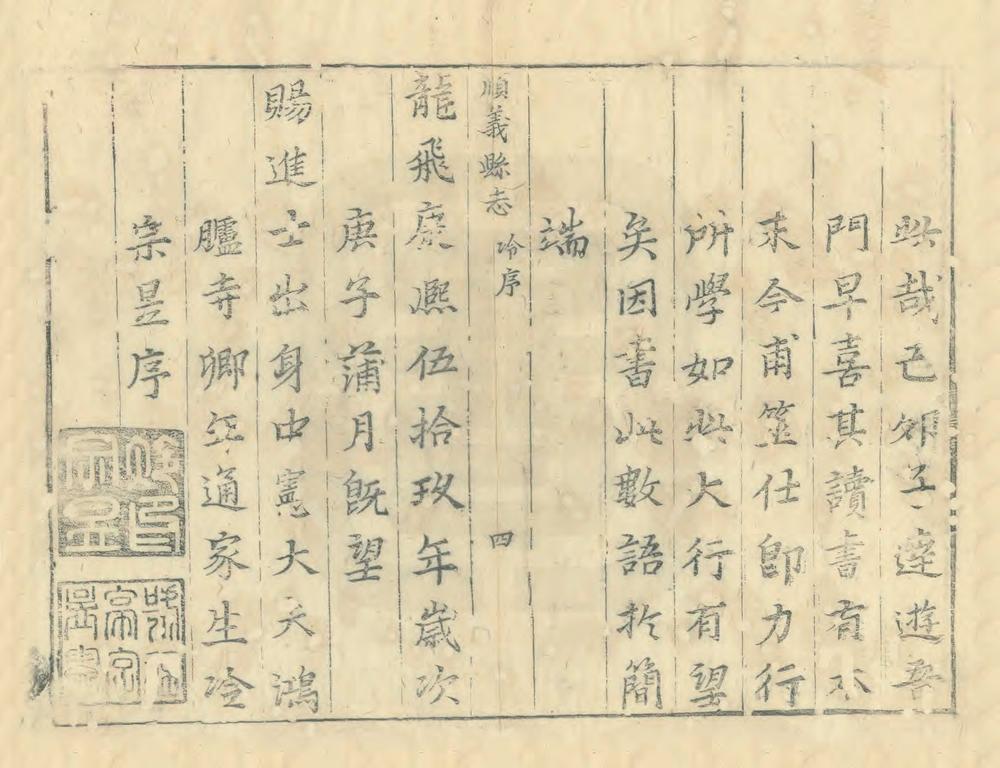 此哉己卯子達遊吾
門早喜其讀書有本
末今甫筮仕即力行
所學如此大行有望
矣因書此數語於簡
端
順義縣志 冷序 四
龍飛康熙伍拾玖年歲次
庚子蒲月既望
賜進士出身中憲大夫鴻
臚寺卿年通家生冷
宗昱序